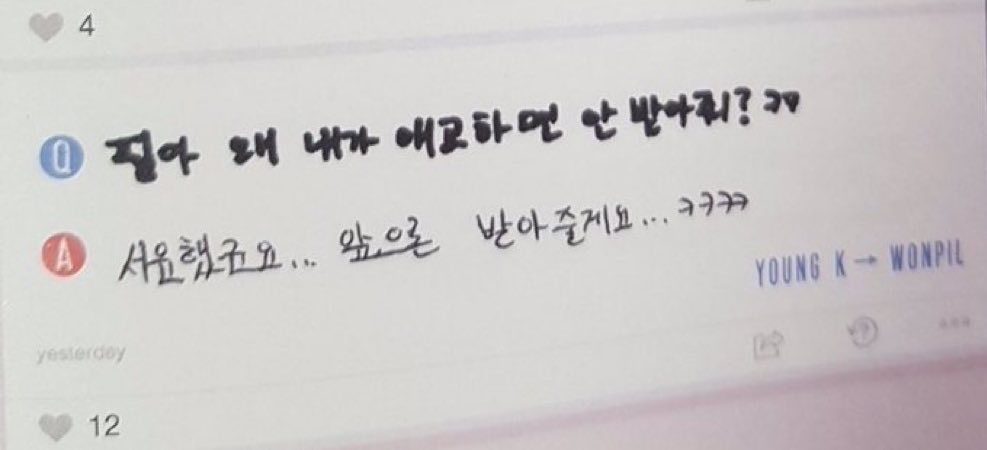 4
Q 필아 왜 내가 애교하면 안 받아줘? ㅋㅋ
A 서운했군요... 앞으론 받아줄게요... ㅋㅋㅋㅋ
YOUNG K → WONPIL
yesterday
12